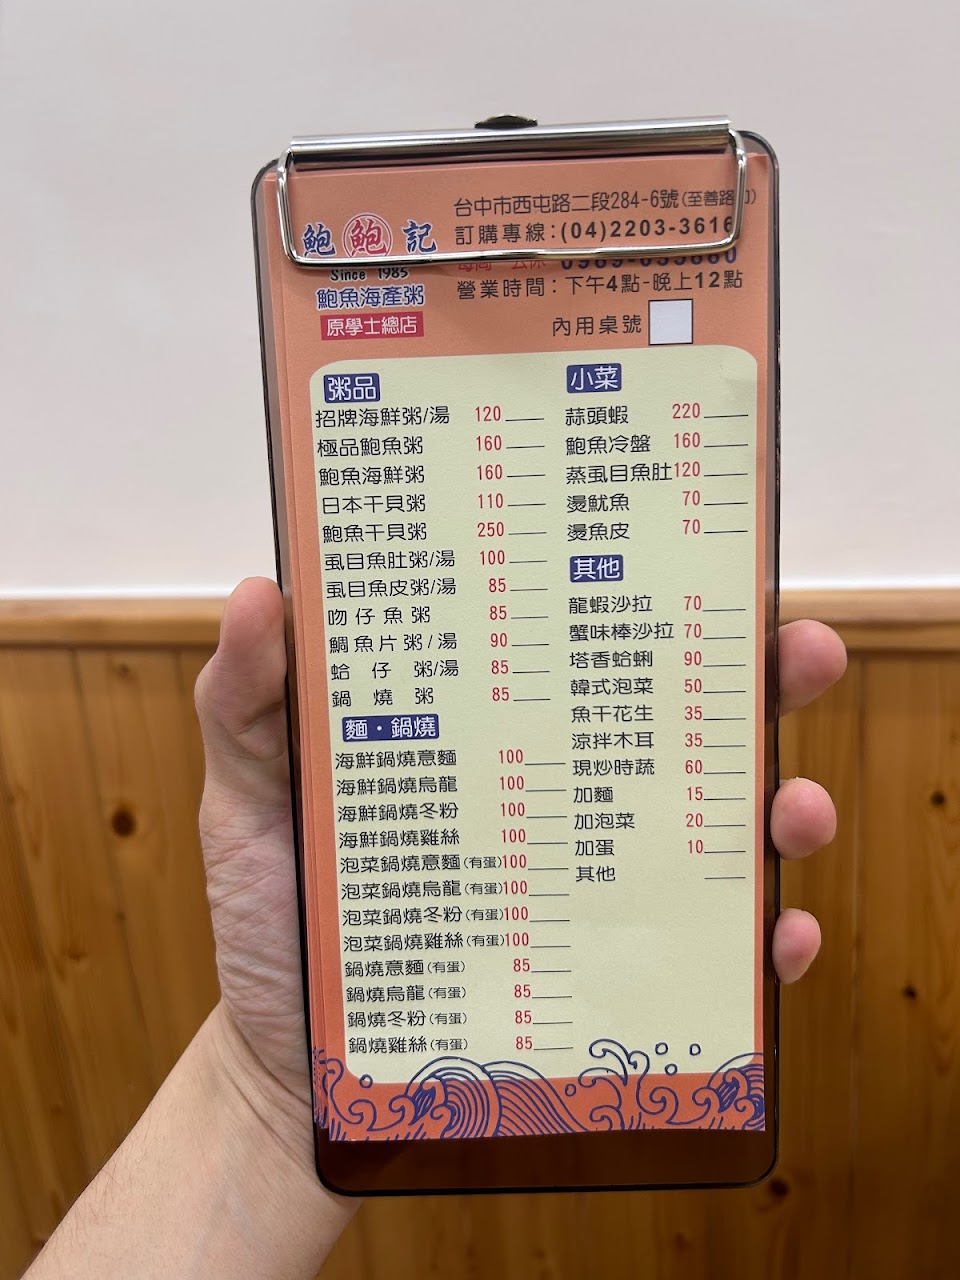 鮑鮑記
Since 1985
鮑魚海產粥
原學士總店
台中市西屯路二段284-6號(至善路口)
訂購專線:(04)2203-3616
營業時間:下午4點-晚上12點
內用桌號
粥品
招牌海鮮粥/湯 120
極品鮑魚粥 160
鮑魚海鮮粥 160
日本干貝粥 110
鮑魚干貝粥 250
虱目魚肚粥/湯 100
虱目魚皮粥/湯 85
吻仔魚粥 85
鯛魚片粥/湯 90
蛤仔粥/湯 85
鍋燒粥 85
麵・鍋燒
海鮮鍋燒意麵 100
海鮮鍋燒烏龍 100
海鮮鍋燒冬粉 100
海鮮鍋燒雞絲 100
泡菜鍋燒意麵(有蛋)100
泡菜鍋燒烏龍(有蛋)100
泡菜鍋燒冬粉(有蛋)100
泡菜鍋燒雞絲(有蛋)100
鍋燒意麵(有蛋) 85
鍋燒烏龍(有蛋) 85
鍋燒冬粉(有蛋) 85
鍋燒雞絲(有蛋) 85
小菜
蒜頭蝦 220
鮑魚冷盤 160
蒸虱目魚肚 120
燙魷魚 70
燙魚皮 70
其他
龍蝦沙拉 70
蟹味棒沙拉 70
塔香蛤蜊 90
韓式泡菜 50
魚干花生 35
涼拌木耳 35
現炒時蔬 60
加麵 15
加泡菜 20
加蛋 10
其他